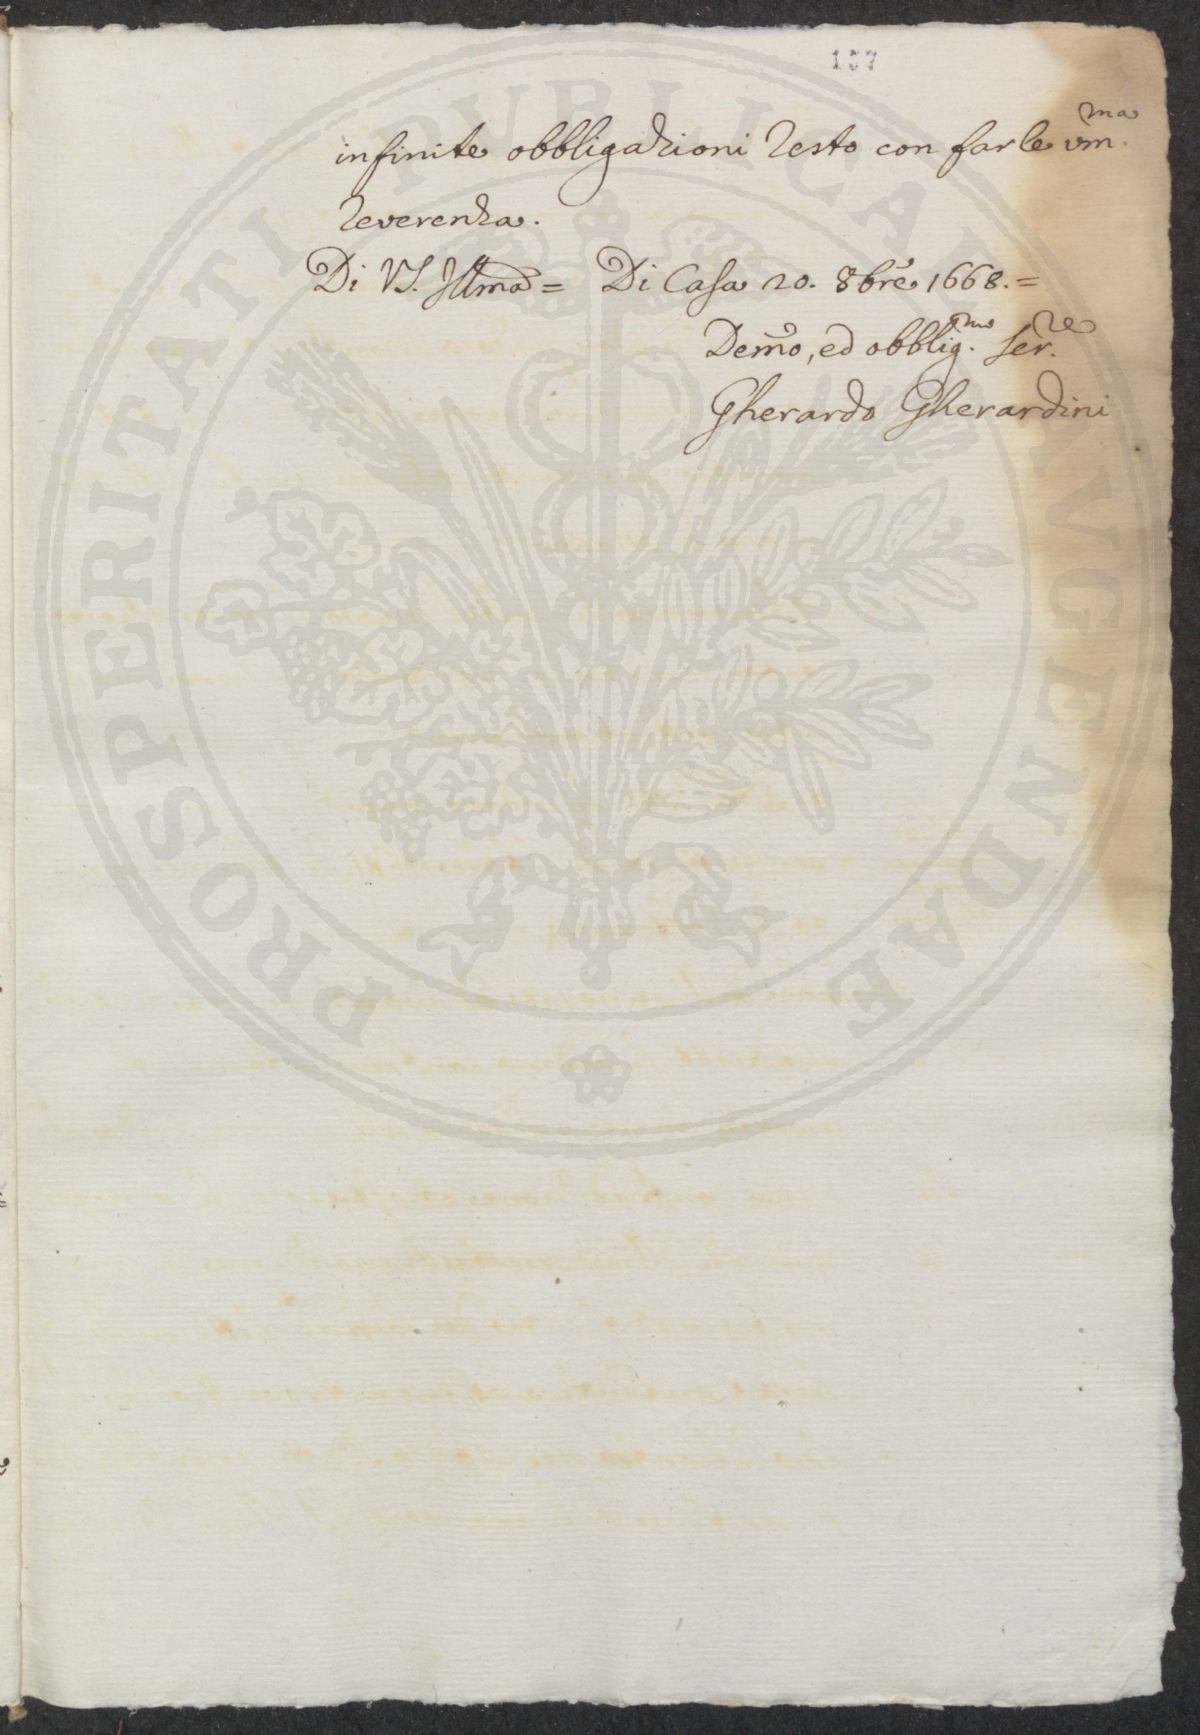 137
infinite obbligazioni resto con farle um.ma
reverenza.
Di VS. Illma = Di Casa 20. 8bre 1668. =
Demo, ed obblig.mo ser.re
Gherardo Gherardini
PROSPERITATI PVBLICAE AVGENDAE